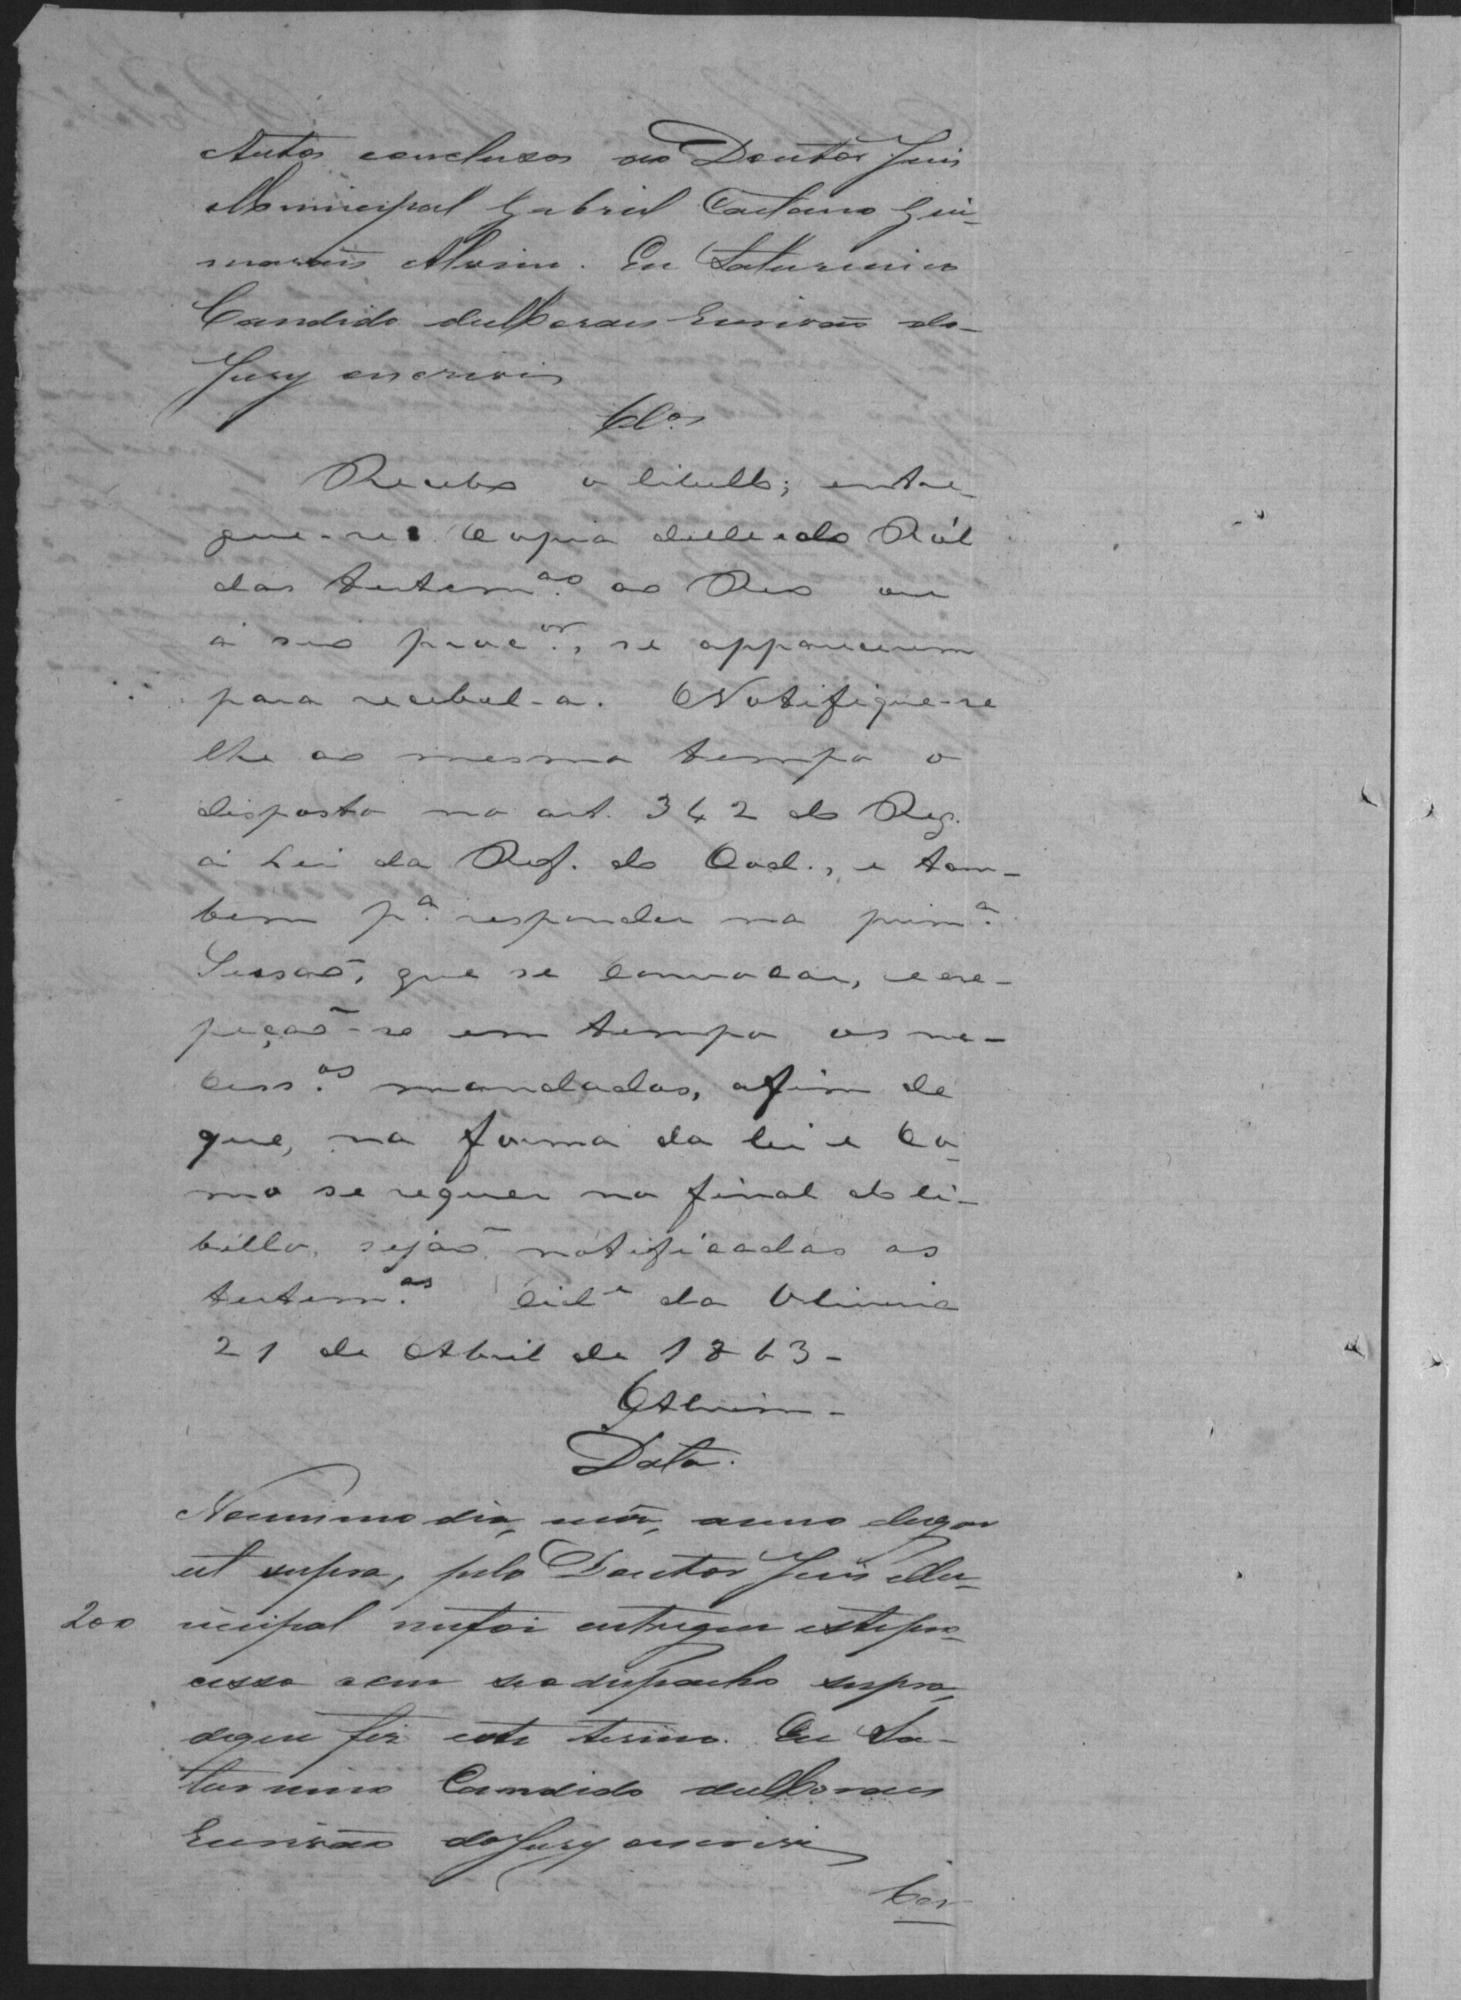 Autos concluzos ao Doutor Juis
Municipal Gabriel Caetano Gui-
marãis Alvim. Eu Saturnino
Candido deMoraes Escrivaõ do
Jury escrivi
Clos
Recebo o libello; entre-
gue-se Copia delle e do Ról
das testem.as ao Reo ou
á seo proc.or, se apparecerem
para recebel-a. Notifique-se
lhe ao mesmo tempo o
disposto no art. 342 do Reg.
á Lei da Ref. do Cod., e tam-
bem p.a responder na prim.a
Sessaõ, que se convocar, e ex-
peçaõ-se em tempo os ne-
cess.os mandados, afim de
que, na forma da lei e co-
mo se requer no final do li-
bello, sejaõ notificadas as
testem.as Cid.e da Oliveira
21 de Abril de 1863-
GAlvim-
Data.
Nomesmo dia, mês, anno elugar
ut supra, pelo Doutor Juis Mu-
200 nicipal mefoi entregue estepro-
cesso com seo despacho supra,
deque fiz este termo. Eu Sa-
turnino Candido deMoraes
Escrivaõ doJury escrivi